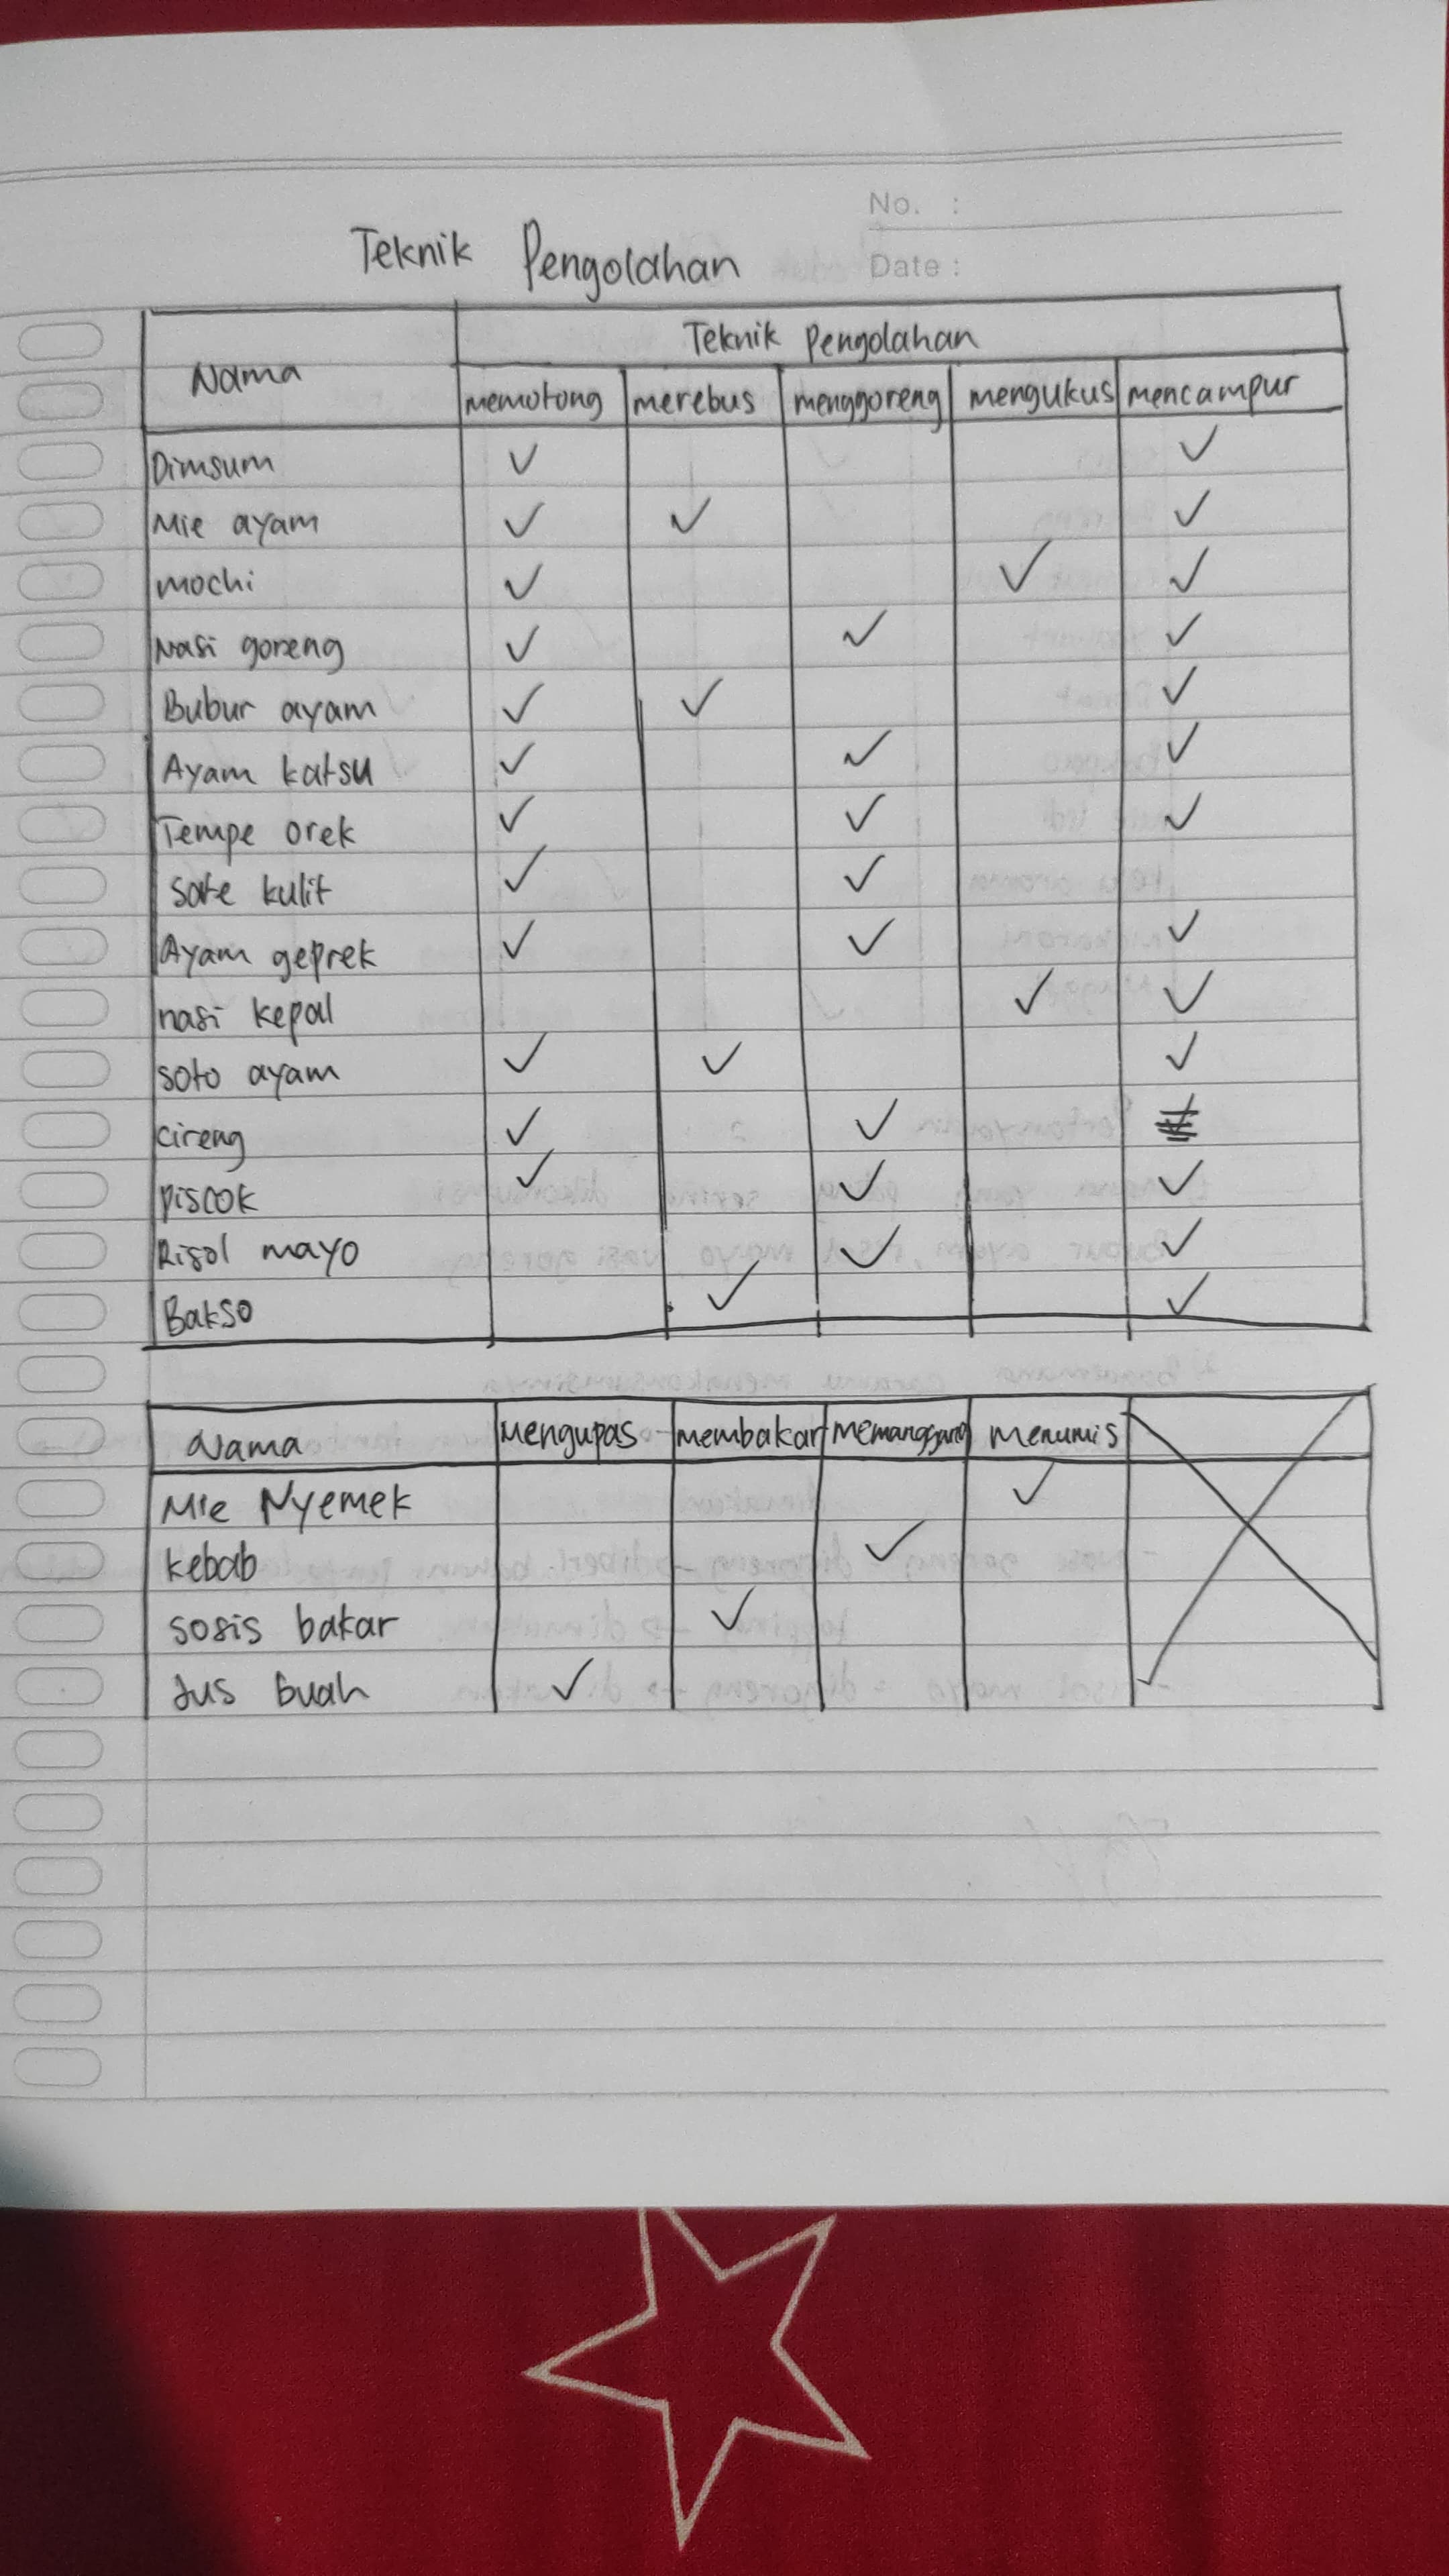 No. :
Teknik Pengolahan
Date :
Nama Teknik Pengolahan
memotong merebus menggoreng mengukus mencampur
Dimsum ✓ ✓
Mie ayam ✓ ✓ ✓
mochi ✓ ✓ ✓
Nasi goreng ✓ ✓ ✓
Bubur ayam ✓ ✓ ✓
Ayam katsu ✓ ✓ ✓
Tempe orek ✓ ✓ ✓
sate kulit ✓ ✓
Ayam geprek ✓ ✓ ✓
nasi kepal ✓ ✓
soto ayam ✓ ✓ ✓
cireng ✓ ✓
piscok ✓ ✓ ✓
Risol mayo ✓ ✓
Bakso ✓ ✓
Nama Mengupas membakar memanggang menumis
Mie Nyemek ✓
kebab ✓
sosis bakar ✓
Jus buah ✓